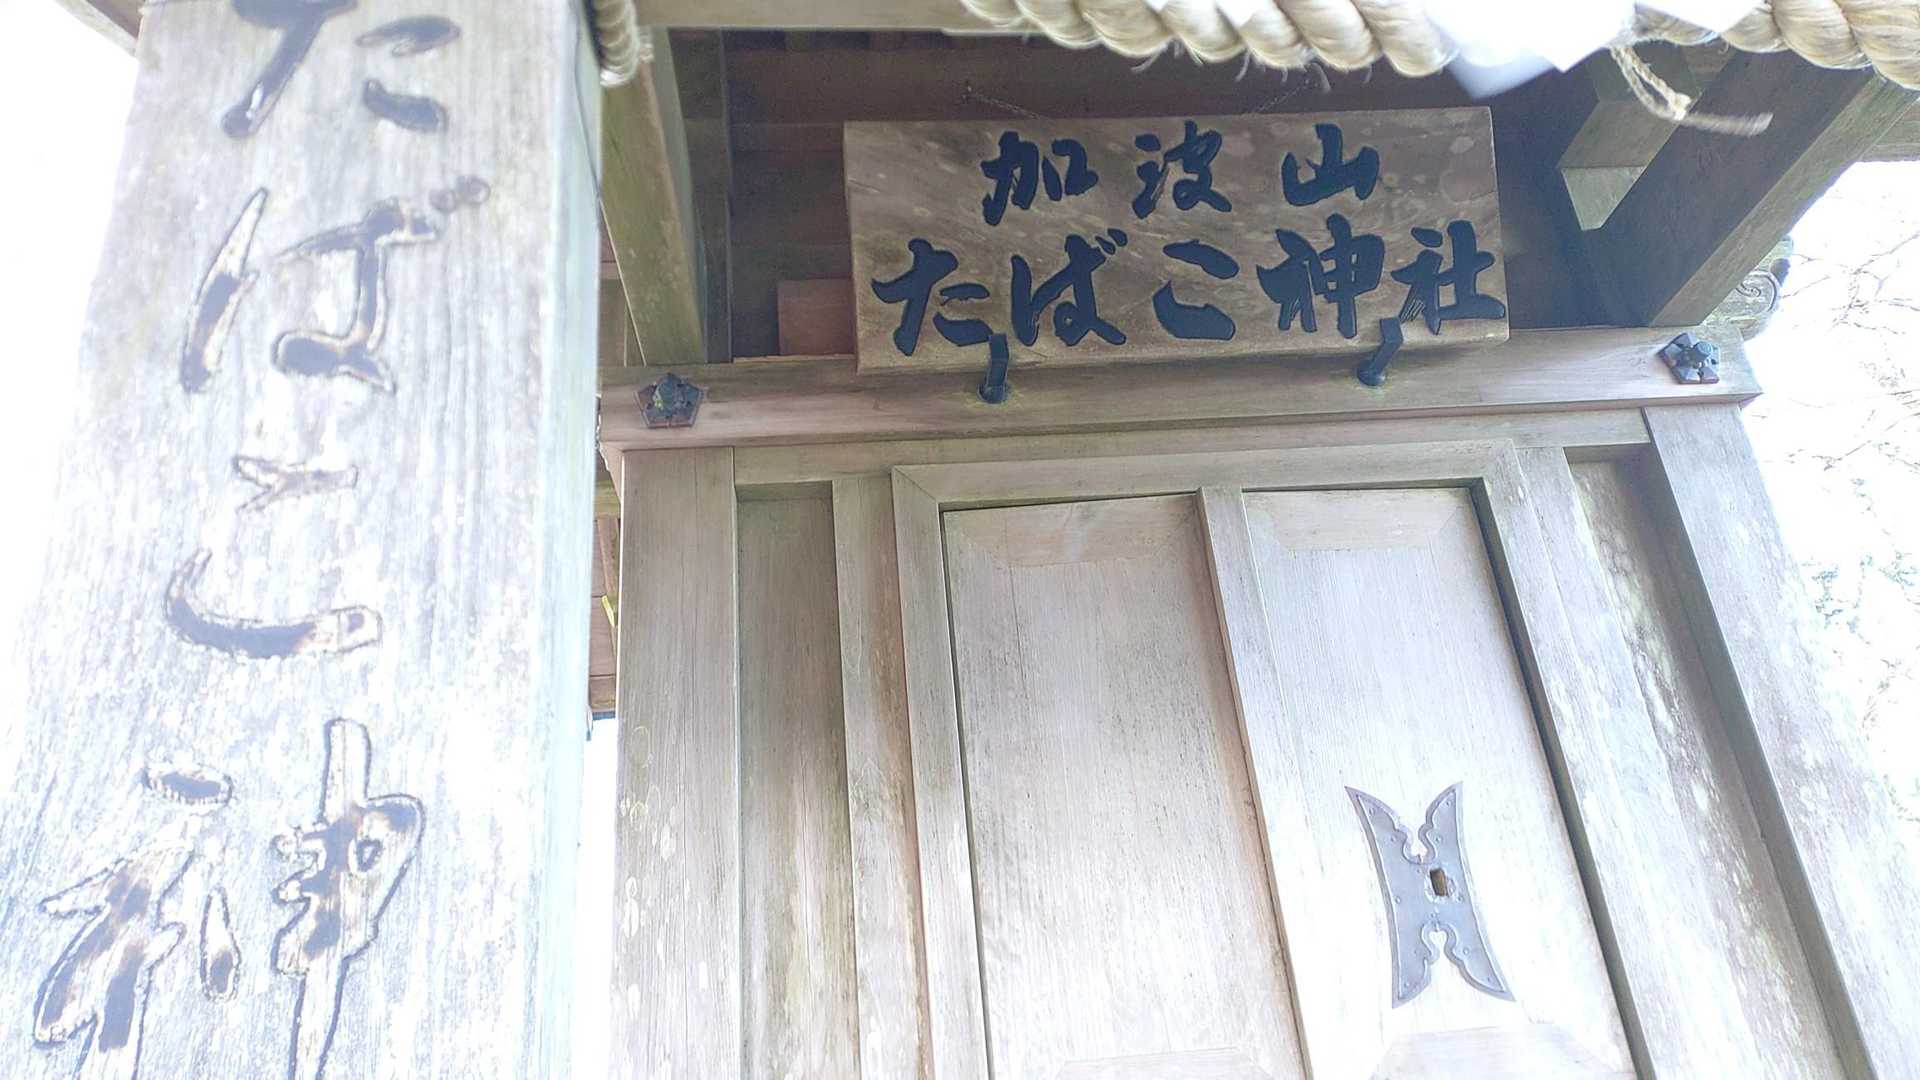 加波山
たばこ神社
たばこ神